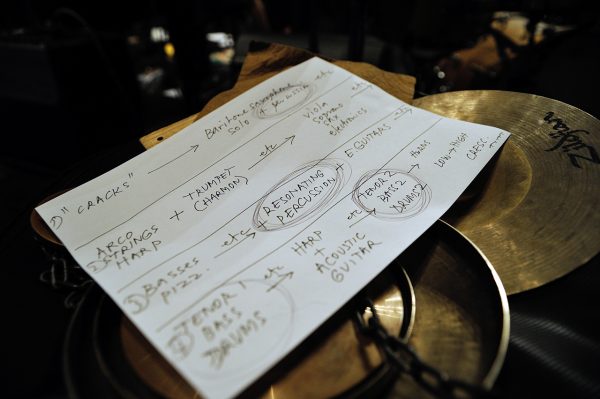 1) "CRACKS" → BARITONE SAXOPHONE SOLO etc
VIOLA SOPRANO SAX ELECTRONICS etc
2) ARCO STRINGS HARP + TRUMPET (CHARMON) etc
RESONATING PERCUSSION + E-GUITARS
3) BASSES PIZZ. etc
HARP + ACOUSTIC GUITAR etc
TENOR 2 BASS 2 DRUMS 2
HORNS LOW → HIGH CRESC
TENOR 1 BASS DRUMS etc
Zildjian